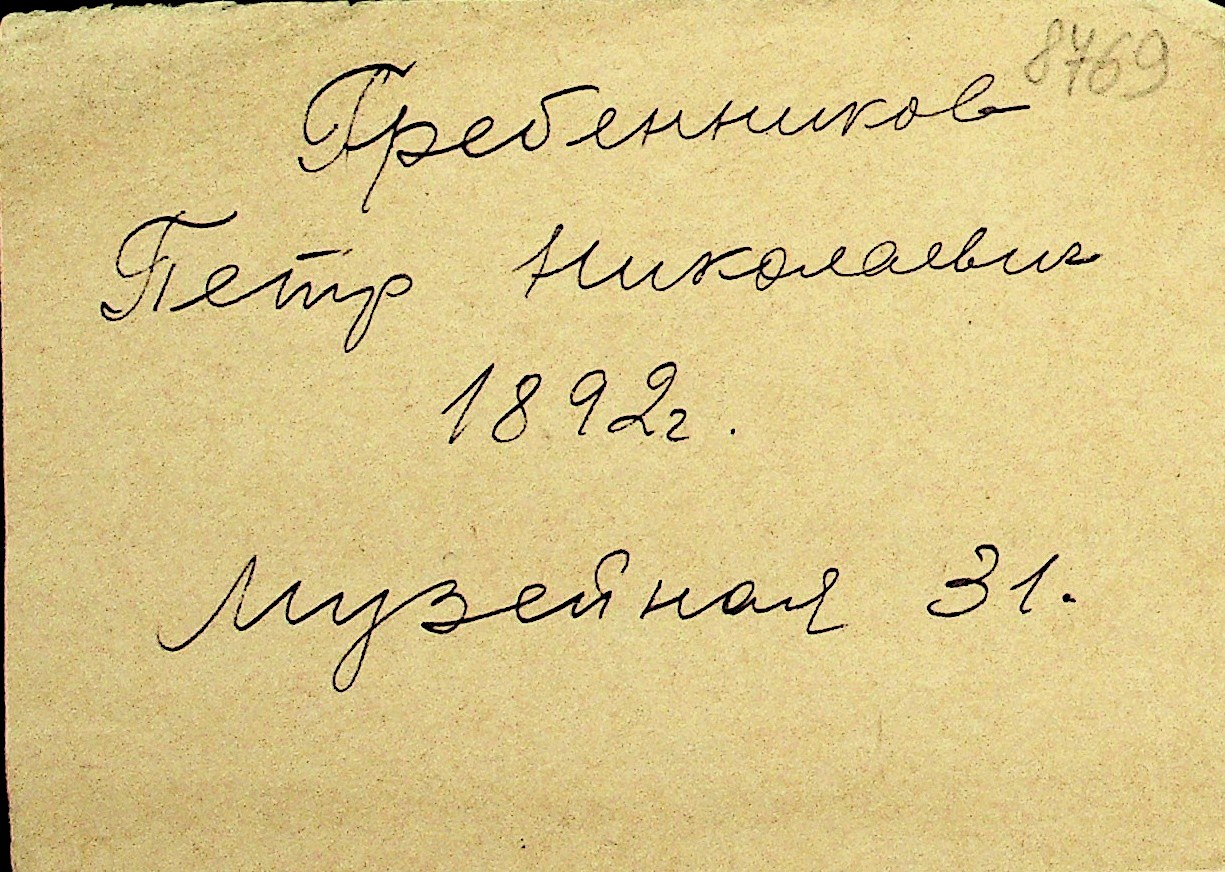 8769
Гребенников
Петр Николаевич
1892г.
Музейная 31.